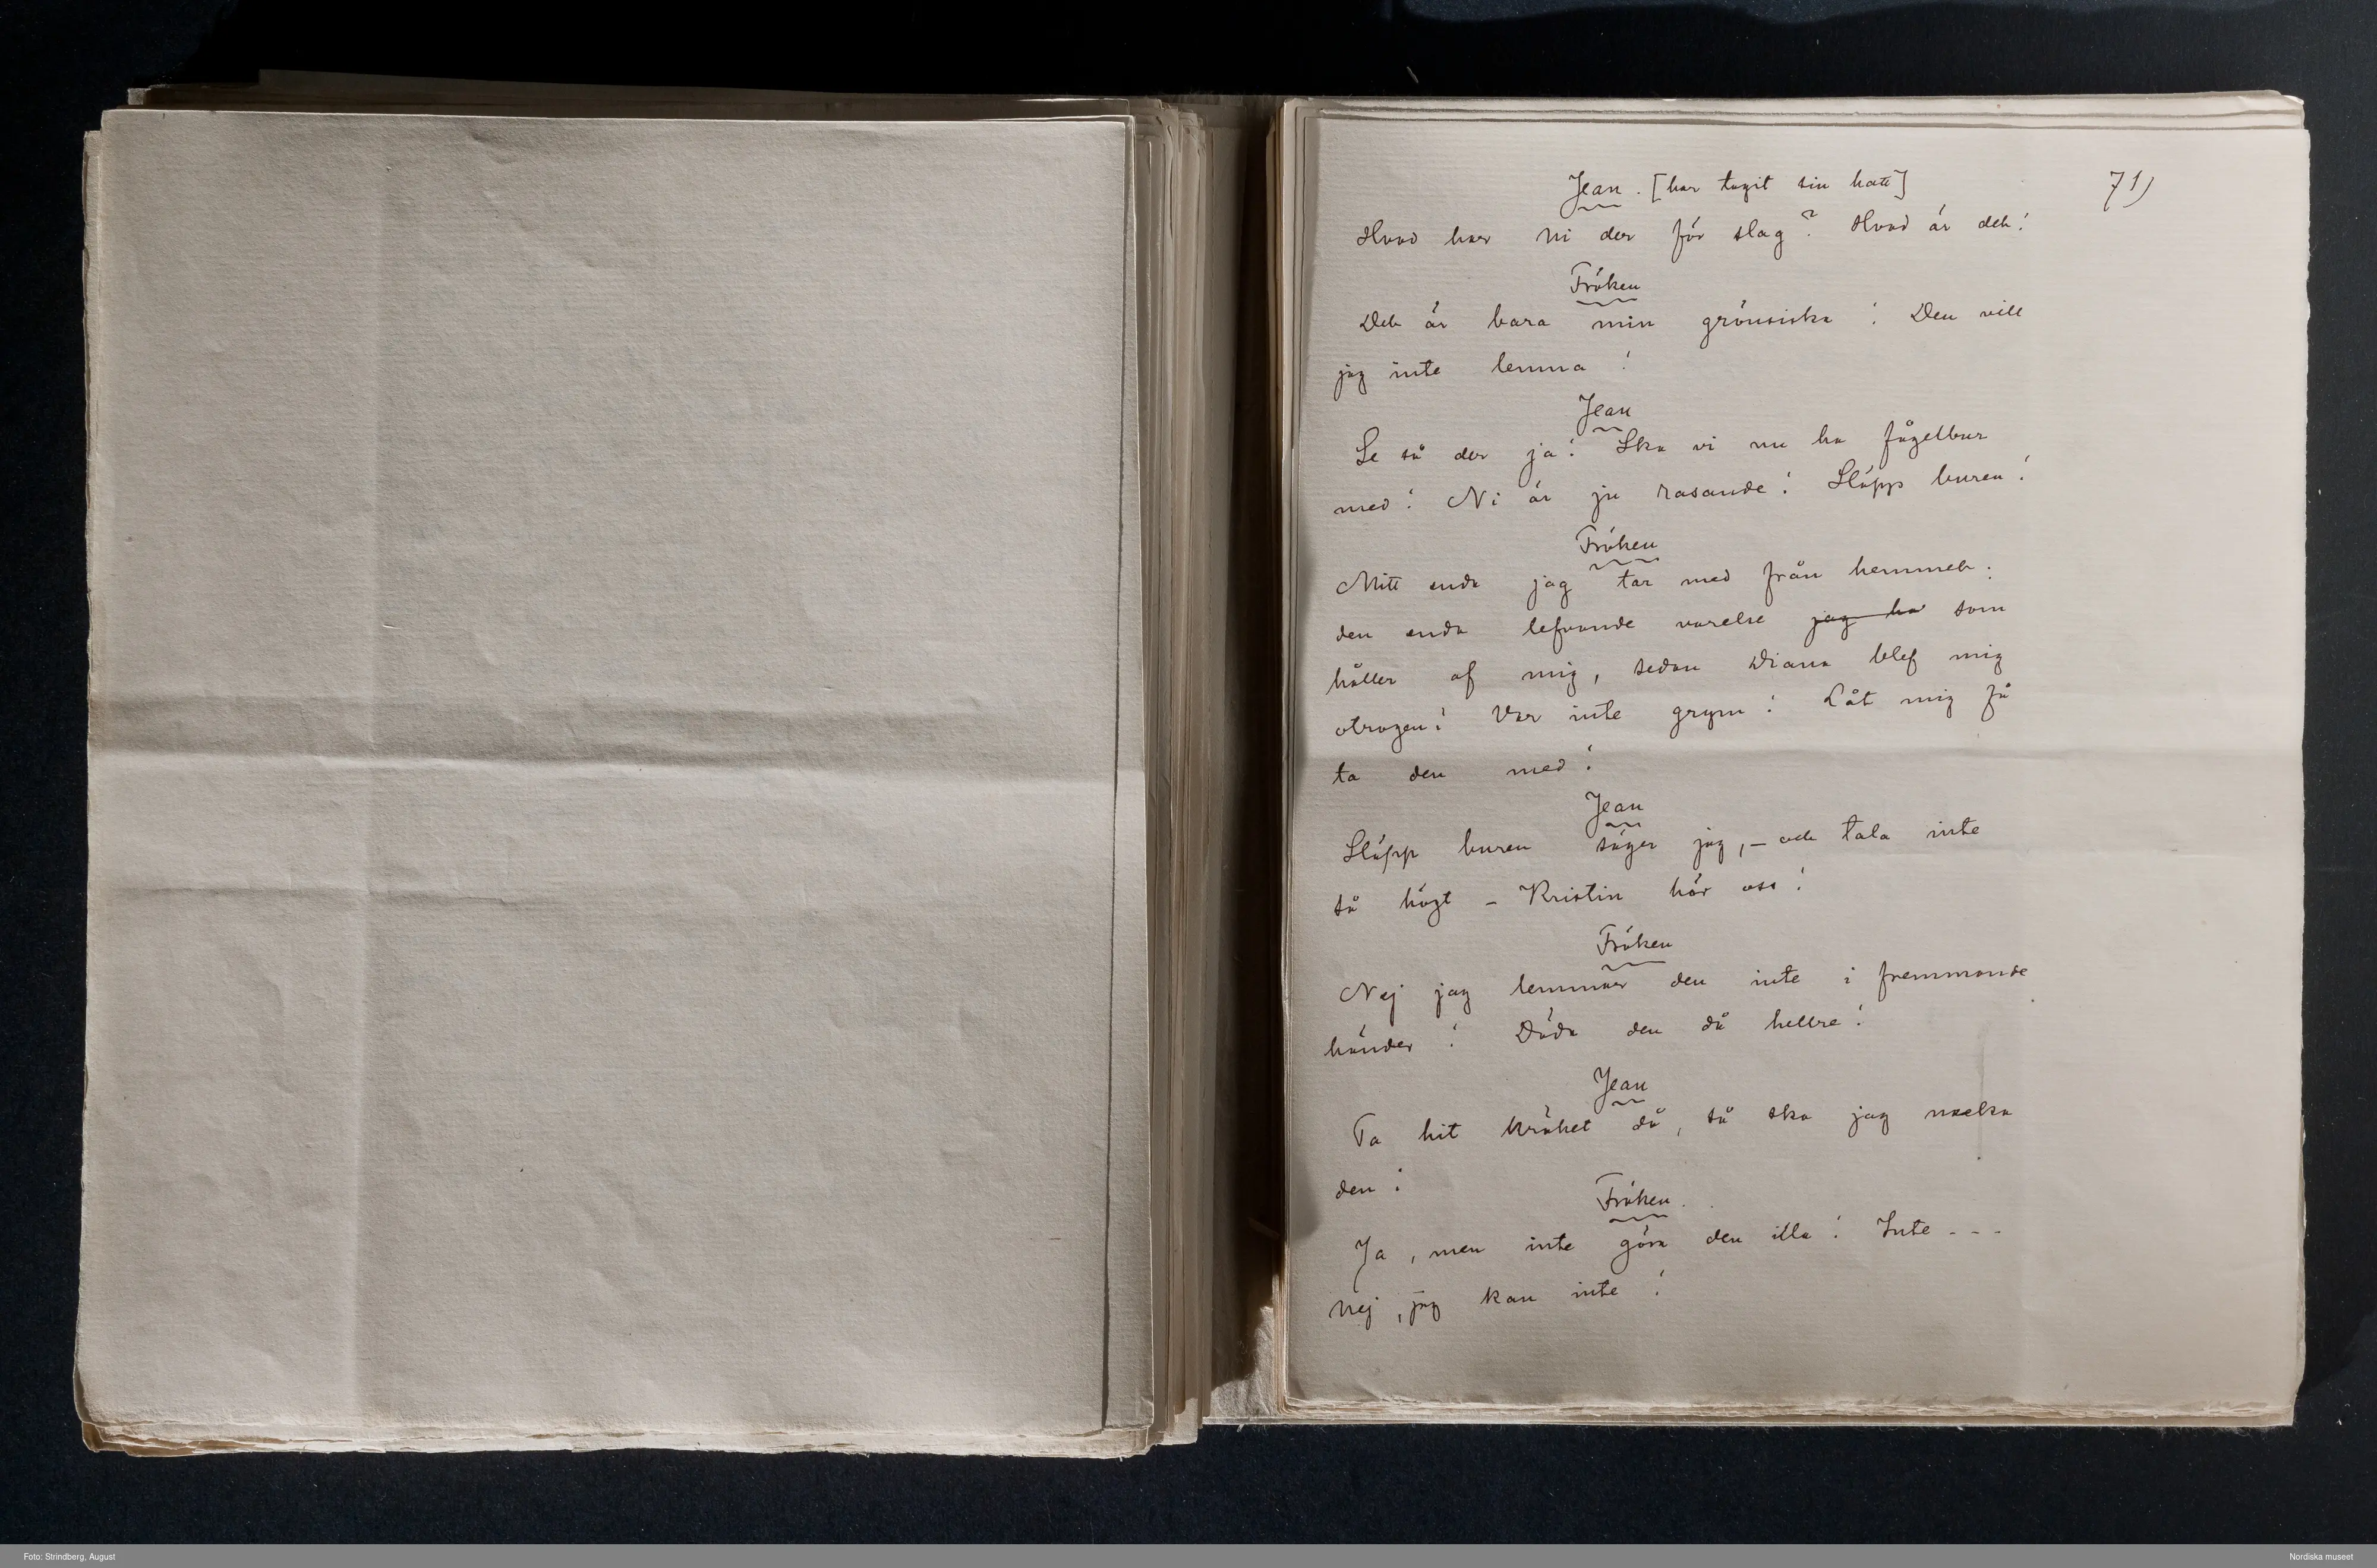 Jean. [har tagit sin hatt]
71)
Hvad har Ni der för slag? Hvad är det!
Fröken
Det är bara min grönsiska! Den vill
jag inte lemna!
Jean
Se så der ja! Ska vi nu ha fågelbur
med! Ni är ju rasande! Släpp buren!
Fröken
Mitt enda jag tar med från hemmet;
den enda lefvande varelse jag ha som
håller af mig, sedan Diana blef mig
otrogen! Var inte grym! Låt mig få
ta den med!
Jean
Släpp buren säger jag, – och tala inte
så högt – Kristin hör oss!
Fröken
Nej jag lemnar den inte i fremmande
händer! Döda den då hellre!
Jean
Ta hit kräket då, så ska jag nacka
den!
Fröken.
Ja, men inte göra den illa! Inte - - -
nej, jag kan inte!
Foto: Strindberg, August
Nordiska museet